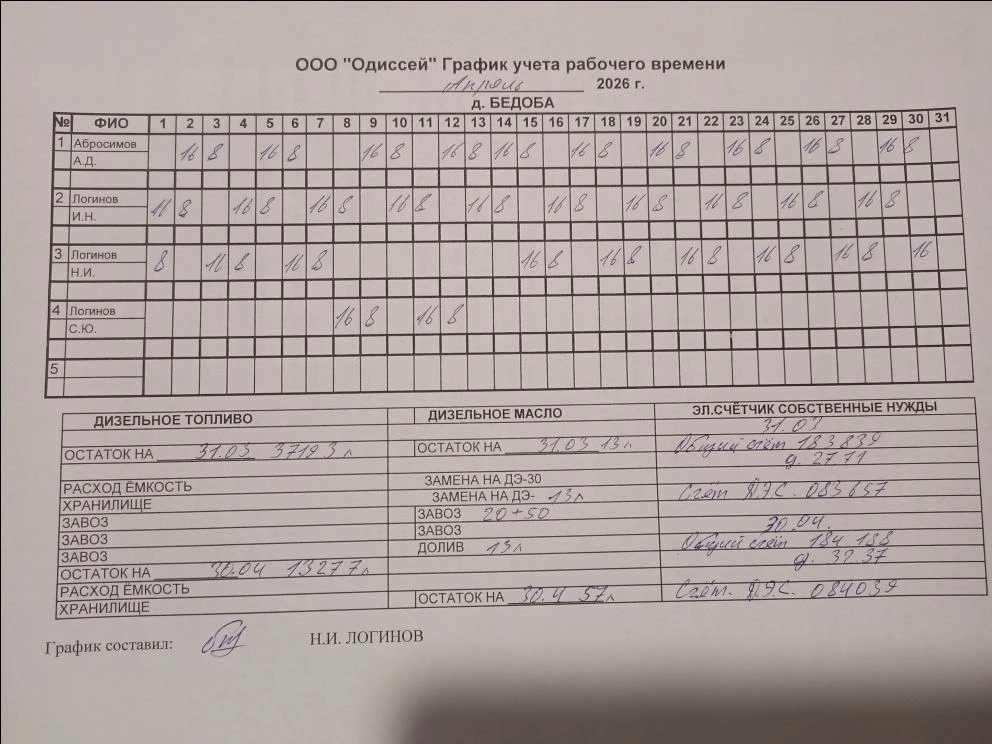 ООО "Одиссей" График учета рабочего времени
Апрель 2026 г.
д. БЕДОБА
№ ФИО 1 2 3 4 5 6 7 8 9 10 11 12 13 14 15 16 17 18 19 20 21 22 23 24 25 26 27 28 29 30 31
1 Абросимов 16 8 16 8 16 8 16 8 16 8 16 8 16 8 16 8 16 8 16 8
А.Д.
2 Логинов 16 8 16 8 16 8 16 8 16 8 16 8 16 8 16 8 16 8 16 8
И.Н.
3 Логинов 8 16 8 16 8 16 8 16 8 16 8 16 8 16 8 16
Н.И.
4 Логинов 16 8 16 8
С.Ю.
5
ДИЗЕЛЬНОЕ ТОПЛИВО ДИЗЕЛЬНОЕ МАСЛО ЭЛ.СЧЁТЧИК СОБСТВЕННЫЕ НУЖДЫ
31.03
ОСТАТОК НА 31.03 37193 л ОСТАТОК НА 31.03 13 л Общий счёт 183839
д. 27.71
РАСХОД ЁМКОСТЬ ЗАМЕНА НА ДЭ-30
ХРАНИЛИЩЕ ЗАМЕНА НА ДЭ- 13 л Счёт Д.Э.С. 083657
ЗАВОЗ ЗАВОЗ 20+50
ЗАВОЗ ЗАВОЗ 30.04.
ЗАВОЗ ДОЛИВ 13 л Общий счёт 184 188
ОСТАТОК НА 30.04 13277 л д. 32.37
РАСХОД ЁМКОСТЬ
ХРАНИЛИЩЕ ОСТАТОК НА 30.4 57 л Счёт. Д.Э.С. 084039
График составил: Н.И. ЛОГИНОВ